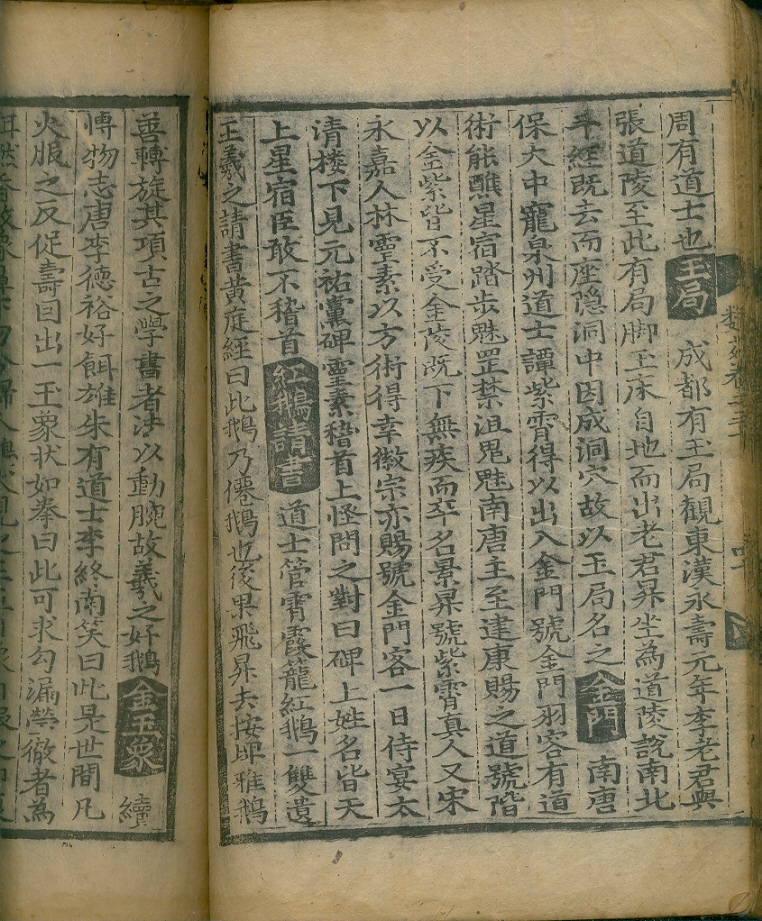 周有道士也玉局　成都有玉局觀東漢永壽元年李老君與
張道陵至此有局脚玉床自地而出老君昇坐為道陵說南北
斗經既去而座隐洞中因成洞穴故以玉局名之金門　南唐
保大中寵泉州道士譚紫霄得以出入金門號金門羽客有道
術能醮星宿踏步魁罡禁沮鬼魅南唐主至建康賜之道號階
以金紫皆不受金陵既下無疾而卒名景昇號紫霄真人又宋
永嘉人林靈素以方術得幸徽宗亦賜號金門客一日侍宴太
清楼下見元祐黨碑靈素稽首上怪問之對曰碑上姓名皆天
上星宿臣敢不稽首紅鵝請書　道士管霄霞籠紅鵝一雙遺
王羲之請書黄庭經曰此鵝乃僊鵝也後果飛昇去按埤雅鵝
善轉旋其項古之學書者法以動腕故羲之好鵝金玉象　續
博物志唐李德裕好餌雄朱有道士李終南笑曰此是世間凡
火服之反促壽因出一玉象状如拳曰此可求勾漏瑩徹者為